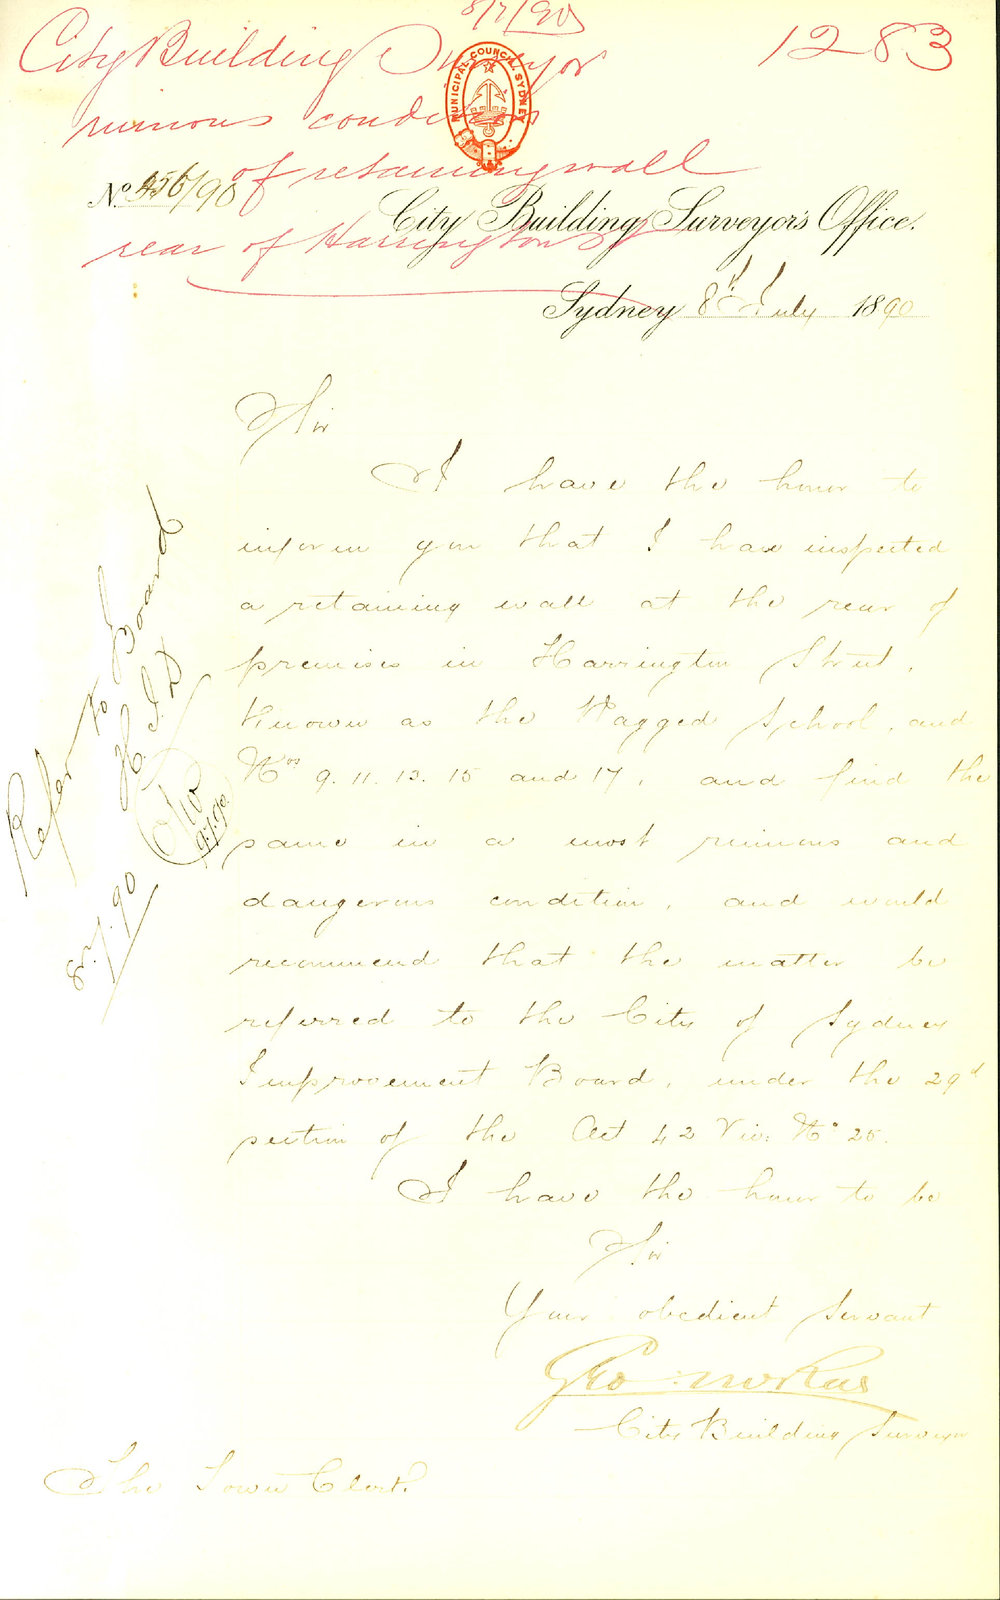 8/7/90
1283
City Building Surveyor
MUNICIPAL COUNCIL SYDNEY
ruinous condition
of retaining wall
No 456/90
City Building Surveyor's Office.
rear of Harrington St
Sydney 8th July 1890
Sir
I have the honor to
inform you that I have inspected
a retaining wall at the rear of
premises in Harrington Street,
Known as the Ragged School, and
Nos 9. 11. 13. 15 and 17, and find the
same in a most ruinous and
dangerous condition, and would
recommend that the matter be
referred to the City of Sydney
Improvement Board, under the 29d
section of the Act 42 Vic. No 25.
I have the honor to be
Sir
Your obedient Servant
Geo
City Building Surveyor
The Town Clerk.
Refer to Board
8.7.90
9.7.90